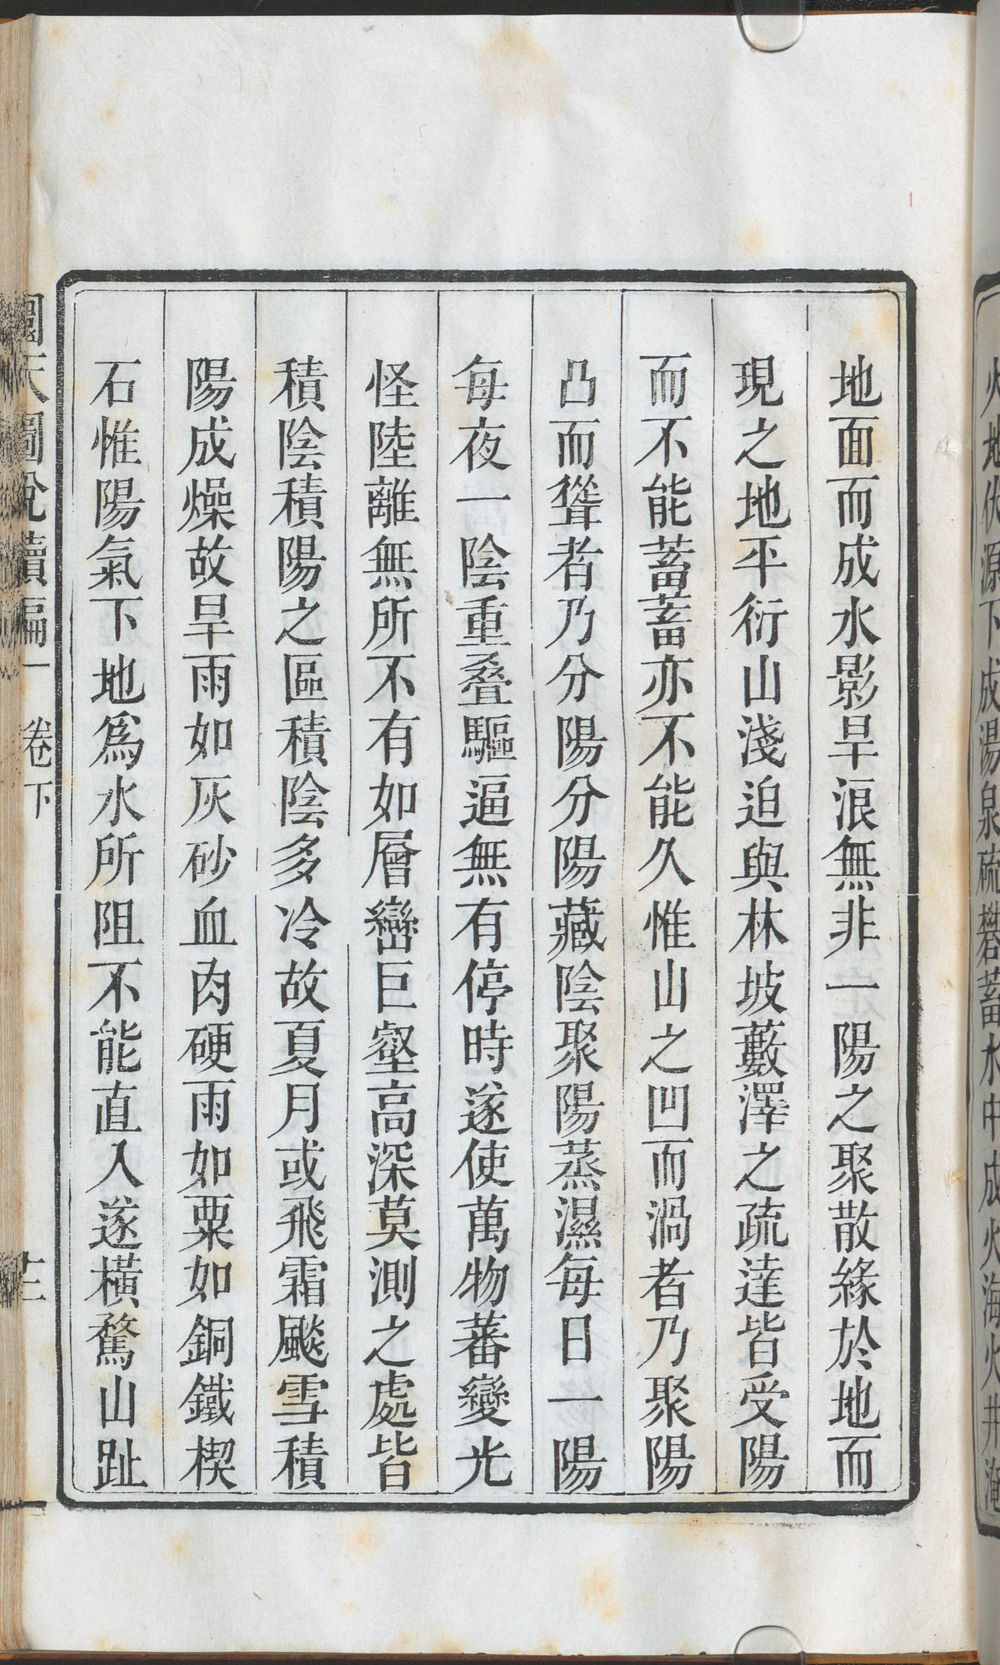 火地伏源下成湯泉硫礬蓄水中成火海火井淹
地面而成水影旱浪無非一陽之聚散緣於地而
現之地平衍山淺迫與林坡藪澤之疏達皆受陽
而不能蓄蓄亦不能久惟山之凹而渦者乃聚陽
凸而聳者乃分陽分陽藏陰聚陽蒸濕每日一陽
每夜一陰重叠驅逼無有停時遂使萬物蕃變光
怪陸離無所不有如層巒巨壑高深莫測之處皆
積陰積陽之區積陰多冷故夏月或飛霜颷雪積
陽成燥故旱雨如灰砂血肉硬雨如粟如銅鐵楔
石惟陽氣下地爲水所阻不能直入遂橫騖山趾
圜天圖說續編 卷下 十二